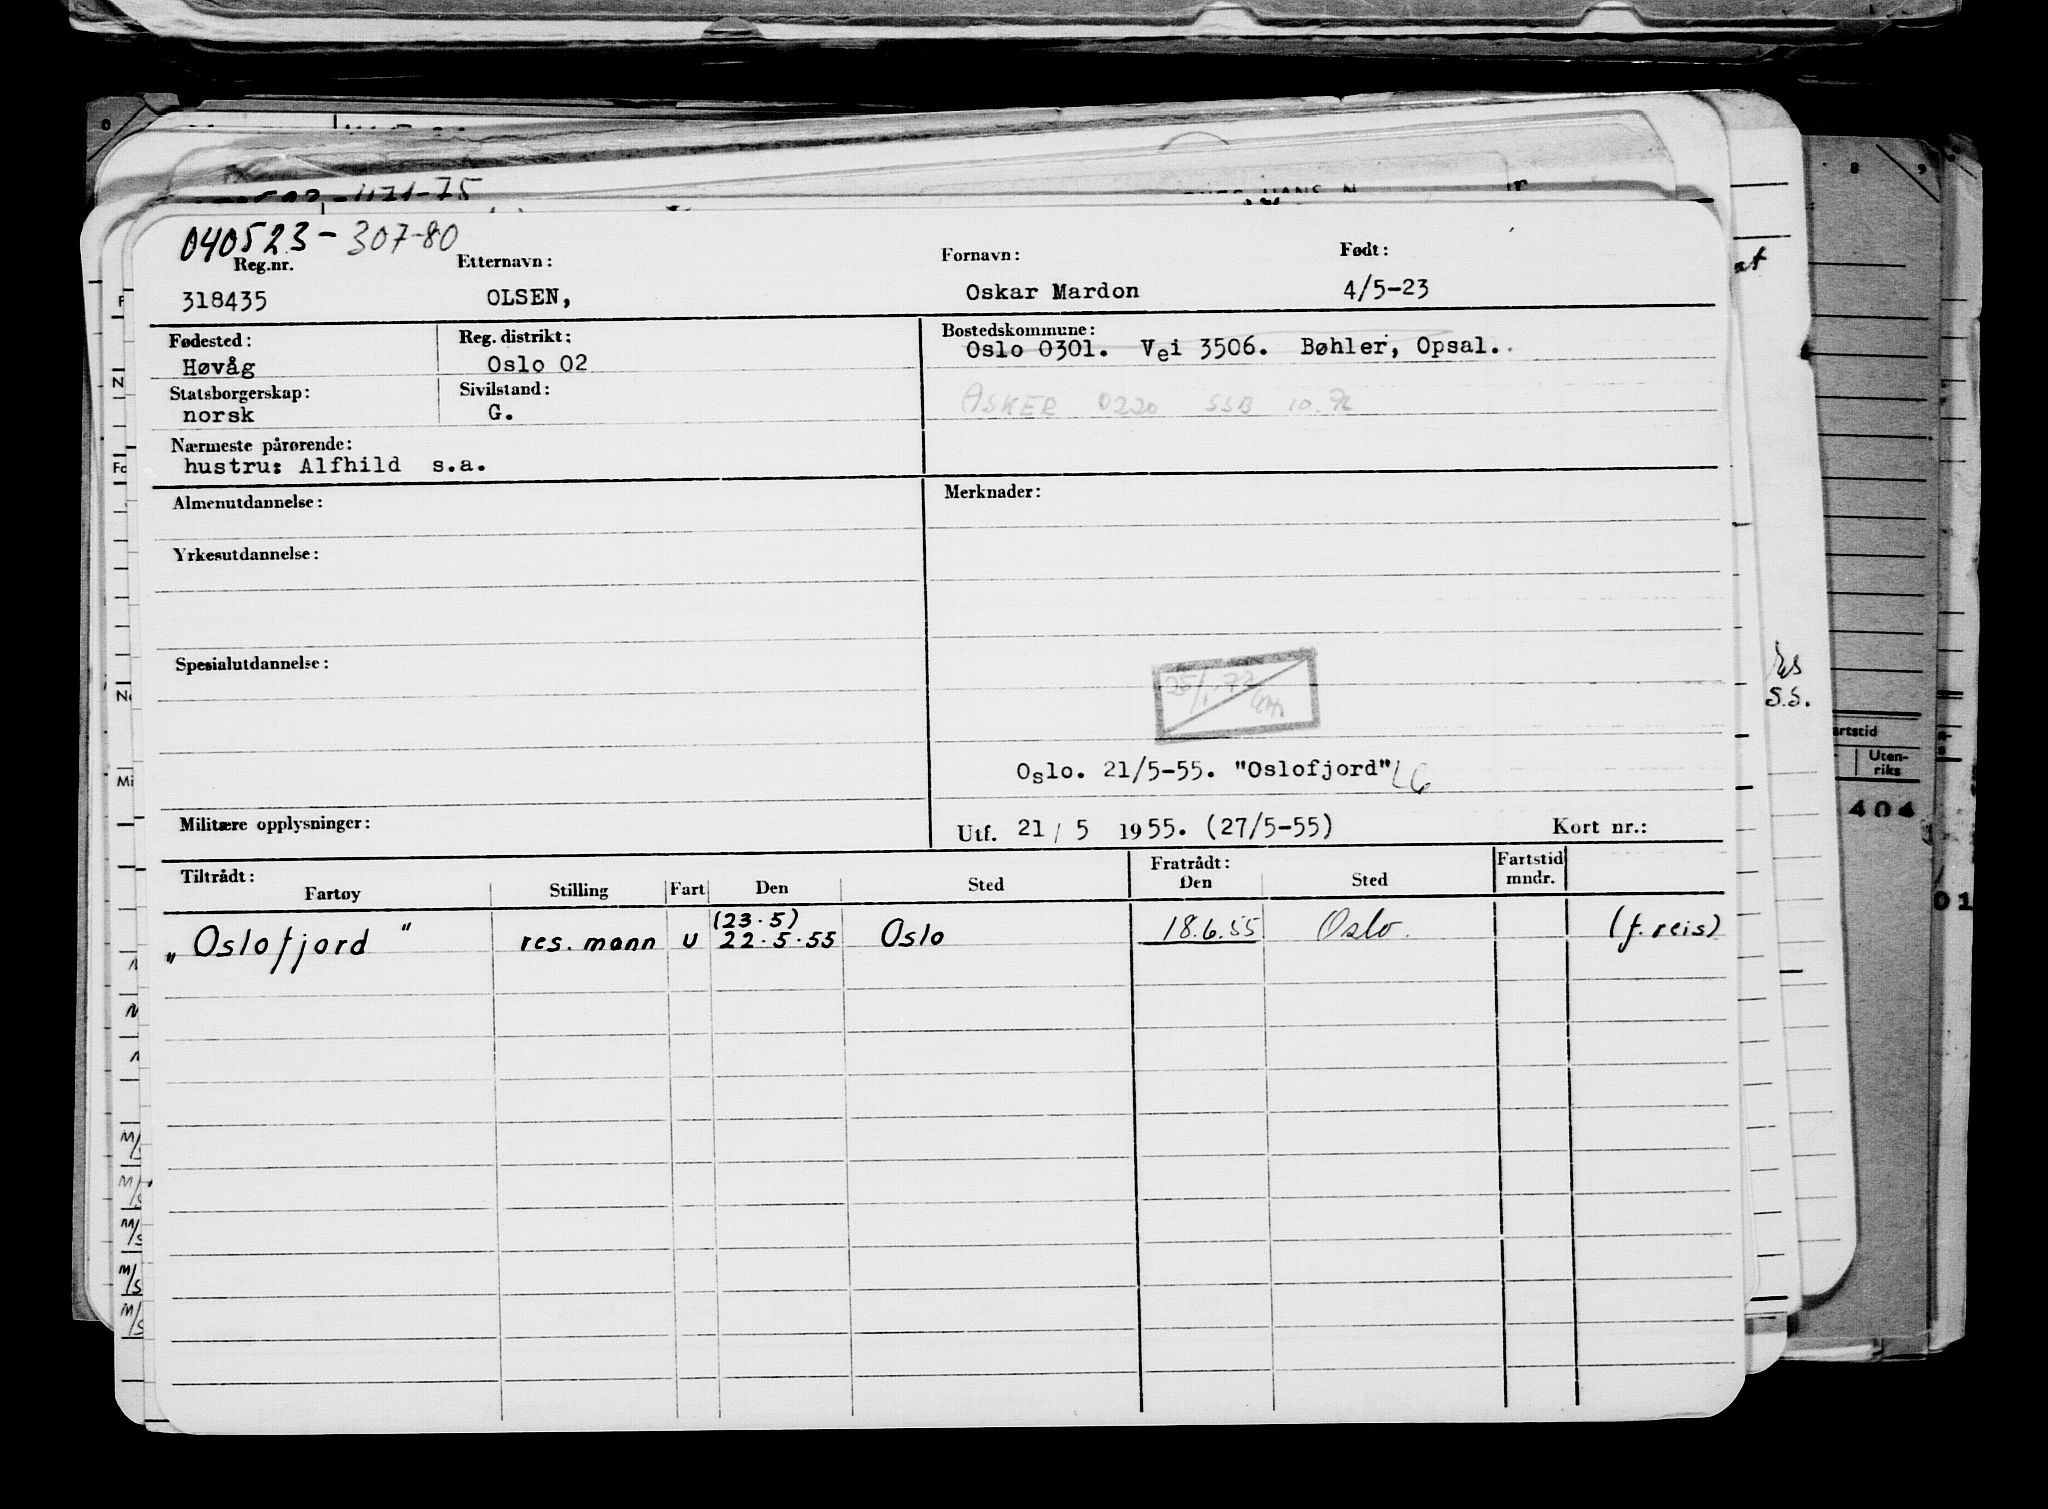 040523-307-80
Reg.nr. Etternavn: Fornavn: Født:
318435 OLSEN, Oskar Mardon 4/5-23
Fødested: Reg. distrikt: Bostedskommune:
Høvåg Oslo 02 Oslo 0301. Vei 3506. Bøhler, Opsal.
Statsborgerskap: Sivilstand:
norsk G. ASKER 0220 SSB 10.
Nærmeste pårørende:
hustru: Alfhild s.a.
Almenutdannelse: Merknader:
Yrkesutdannelse:
Spesialutdannelse:
Oslo. 21/5-55. "Oslofjord"
Militære opplysninger: Utf. 21 / 5 1955. (27/5-55) Kort nr.:
Tiltrådt: Fratrådt: Fartstid
Fartøy Stilling Fart Den Sted Den Sted mndr.
(23.5)
„Oslofjord" res. mann U 22.5.55 Oslo 18.6.55 Oslo. (f. reis)